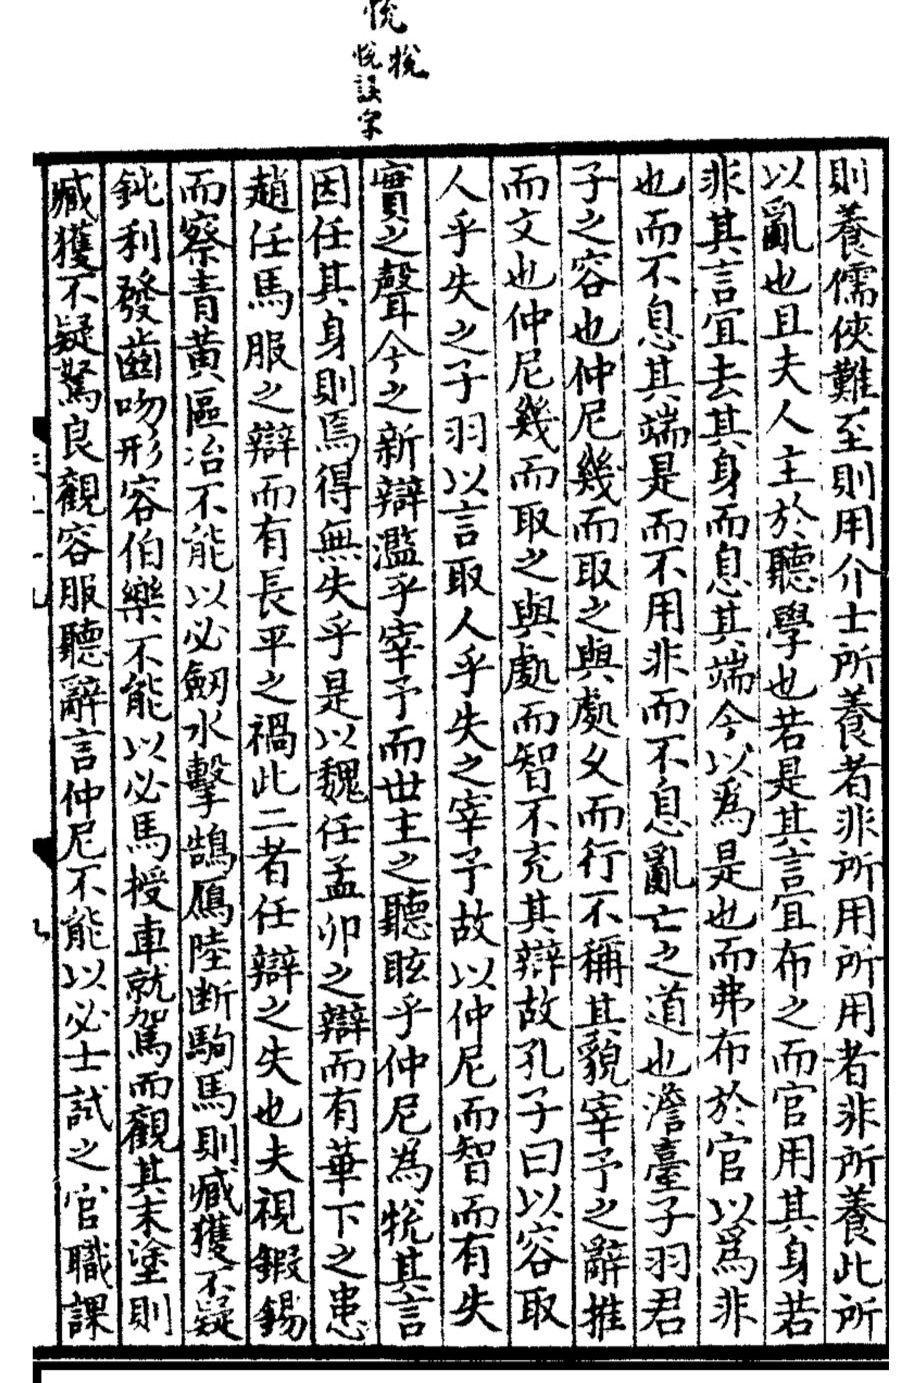 悅 梲
悅誤字
則養儒俠難至則用介士所養者非所用所用者非所養此所
以亂也且夫人主於聽學也若是其言宜布之而官用其身若
非其言宜去其身而息其端今以爲是也而弗布於官以爲非
也而不息其端是而不用非而不息亂亡之道也澹臺子羽君
子之容也仲尼幾而取之與處乆而行不稱其貌宰予之辭推
而文也仲尼幾而取之與處而智不充其辯故孔子曰以容取
人乎失之子羽以言取人乎失之宰予故以仲尼而智而有失
實之聲今之新辯濫乎宰予而世主之聽眩乎仲尼為梲其言
因任其身則焉得無失乎是以魏任孟卯之辯而有華下之患
趙任馬服之辯而有長平之禍此二者任辯之失也夫視鍜錫
而察青黃區冶不能以必劒水擊鵠鴈陸断駒馬則臧獲不疑
鈍利發齒吻形容伯樂不能以必馬授車就駕而觀其末塗則
臧獲不疑駑良觀容服聽辭言仲尼不能以必士試之官職課